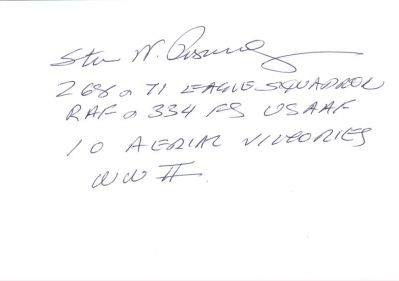 Steve N. Pisanos
268 & 71 EAGLE SQUADRON
RAF & 334 FS USAAF
10 AERIAL VICTORIES
WW II.